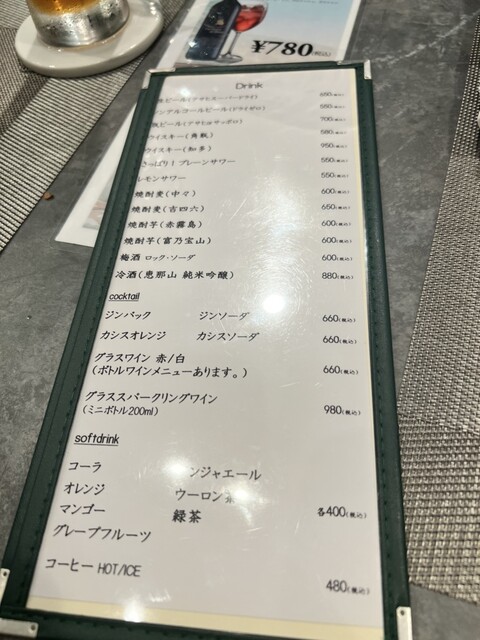 ¥780(税込)
Drink
ビール(アサヒスーパードライ) 650(税込)
ンアルコールビール(ドライゼロ) 550(税込)
瓶ビール(アサヒorサッポロ) 700(税込)
ウイスキー(角瓶) 580(税込)
ウイスキー(知多) 950(税込)
さっぱり!プレーンサワー 550(税込)
レモンサワー 550(税込)
焼酎麦(中々) 600(税込)
焼酎麦(吉四六) 650(税込)
焼酎芋(赤霧島) 600(税込)
焼酎芋(富乃宝山) 600(税込)
梅酒 ロック・ソーダ 600(税込)
冷酒(恵那山 純米吟醸) 880(税込)
cocktail
ジンバック ジンソーダ 660(税込)
カシスオレンジ カシスソーダ 660(税込)
グラスワイン 赤/白
(ボトルワインメニューあります。) 660(税込)
グラススパークリングワイン
(ミニボトル200ml) 980(税込)
softdrink
コーラ ンジャエール
オレンジ ウーロン茶
マンゴー 緑茶 各400(税込)
グレープフルーツ
コーヒー HOT/ICE 480(税込)